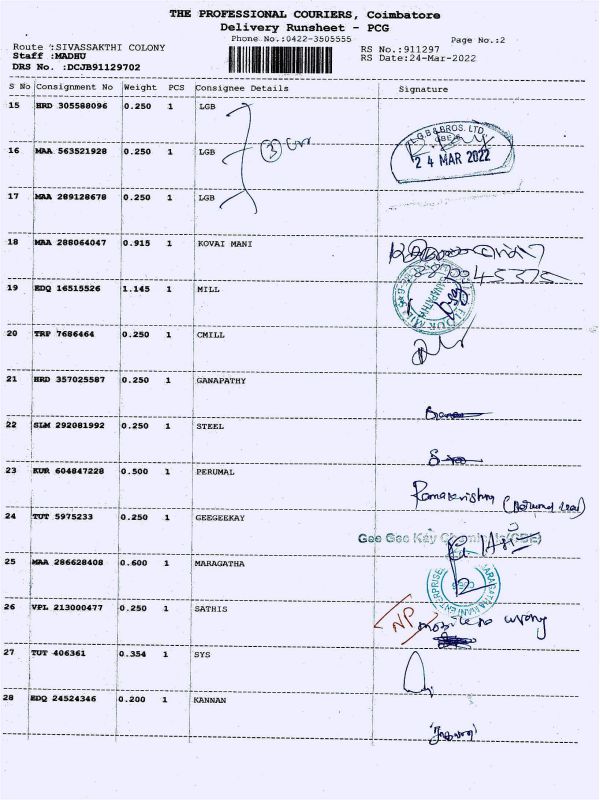 THE PROFESSIONAL COURIERS, Coimbatore
Delivery Runsheet - PCG
Phone No.:0422-3505555
Page No.:2
Route :SIVASSAKTHI COLONY
Staff :MADHU
DRS No. :DCJB91129702
RS No.:911297
RS Date:24-Mar-2022
S No Consignment No Weight PCS Consignee Details Signature
15 HRD 305588096 0.250 1 LGB
L.G.B & BROS. LTD.
24 MAR 2022
16 MAA 563521928 0.250 1 LGB
17 MAA 289128678 0.250 1 LGB
18 MAA 288064047 0.915 1 KOVAI MANI
19 EDQ 16515526 1.145 1 MILL
20 TRP 7686464 0.250 1 CMILL
21 HRD 357025587 0.250 1 GANAPATHY
22 SLM 292081992 0.250 1 STEEL
23 KUR 604847228 0.500 1 PERUMAL
Ramakrishna
24 TUT 5975233 0.250 1 GEEGEEKAY
Gee Gee Kay
25 MAA 286628408 0.600 1 MARAGATHA
26 VPL 213000477 0.250 1 SATHIS
NP mobile no wrong
27 TUT 406361 0.354 1 SYS
28 EDQ 24524346 0.200 1 KANNAN